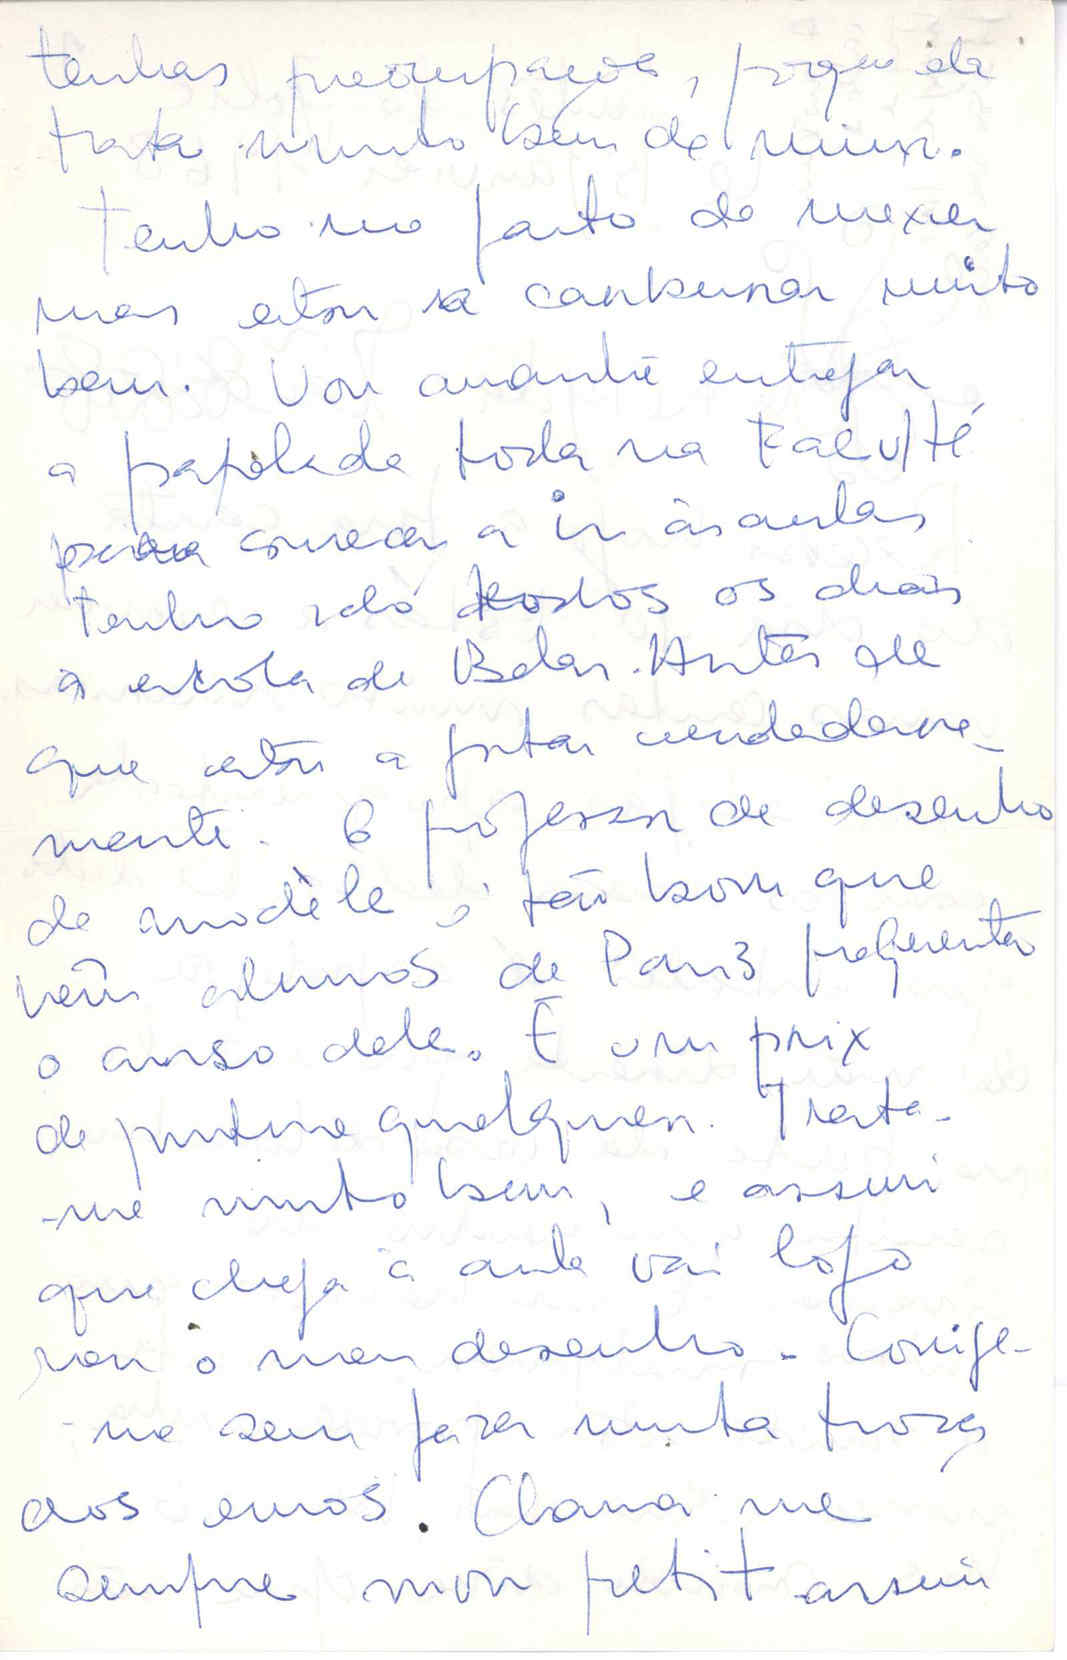 tenhas preocupações, porque ela
trata muito bem de mim.
Tenho me farto de mexer
mas estou a caminhar muito
bem. Vou amanhã entregar
a papelada toda na Faculté
para começar a ir às aulas
tenho ido todos os dias
à escola de Belas. Artes de
que estou a gostar verdadeira-
mente. O professor de desenho
de modèle é tão bom que
vêm alunos de Paris frequentar
o curso dele. É um prix
de peinture qualquer. Trata-
-me muito bem, e assim
que chega à aula vai logo
ver o meu desenho. Corrige-
-me sem fazer muita troça
aos erros. Chama me
sempre mon petit assim